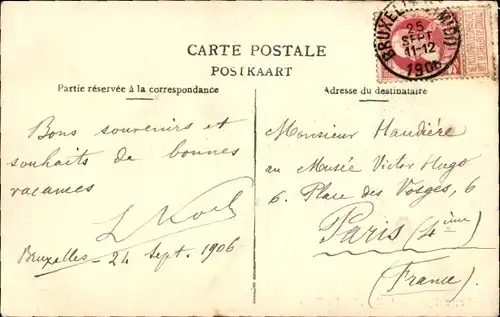 CARTE POSTALE
POSTKAART
Partie réservée à la correspondance
Adresse du destinataire
25
SEPT
11-12
1906
Bons souvenirs et
souhaits de bonnes
vacances
Bruxelles - 24 Sept. 1906
Monsieur Haudière
au Musée Victor Hugo
6. Place des Vosges, 6
Paris (4ième)
(France).